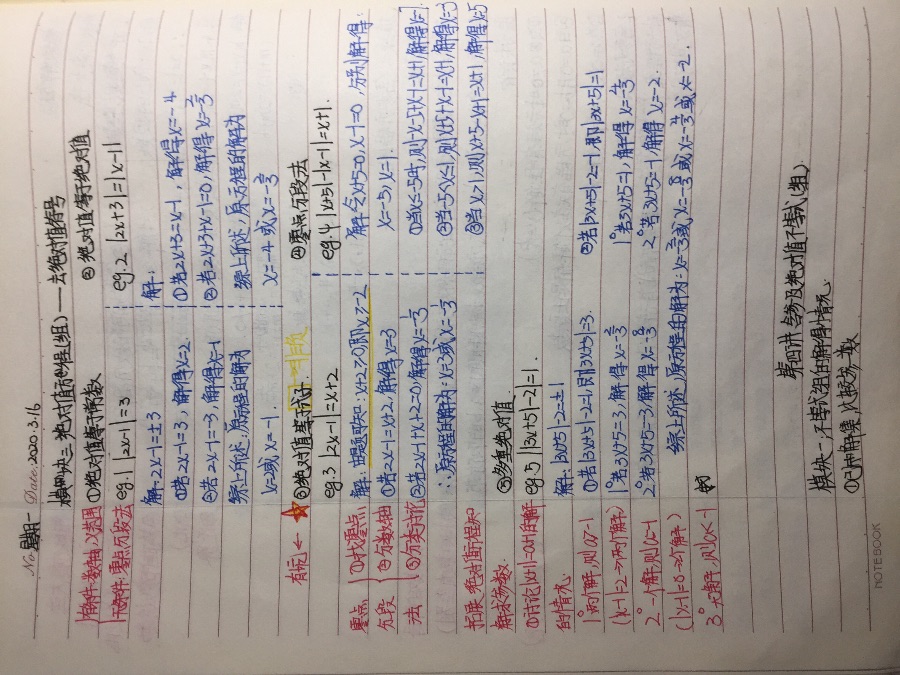 No. 星期一 Date. 2020.3.16
模块三 绝对值方程(组)——去绝对值符号
有条件:数轴,范围
无条件:零点分段法
①绝对值等于常数
eg.1 |2x-1|=3
解:2x-1=±3
①若2x-1=3,解得x=2
②若2x-1=-3,解得x=-1
综上所述:原方程的解为
x=2或x=-1.
②绝对值等于绝对值
eg.2 |2x+3|=|x-1|
解:
①若2x+3=x-1,解得x=-4
②若2x+3+x-1=0,解得x=-2/3
综上所述,原方程的解为
x=-4或x=-2/3
③绝对值等于式子
eg.3 |2x-1|=x+2
解:由题可知:x+2≥0即x≥-2
①若2x-1=x+2,解得x=3
②若2x-1+x+2=0,解得x=-1/3
∴原方程的解为:x=3或x=-1/3
零点
分段
法
①找零点
②分数轴
③分类讨论
④零点分段法
eg.4 |x+5|-|x-1|=x+1.
解:令x+5=0,x-1=0,分别解得:
x=-5,x=1.
①当x≤-5时,则-x-5+x-1=x+1,解得x=-7
②当-5<x≤1,则x+5+x-1=x+1,解得x=-3
③当x>1,则x+5-x+1=x+1,解得x=5
拓展:绝对值方程知
解求参数.
①讨论|x-1|=a时的解
的情况.
1°两个解,则a>-1
2°一个解,则a=-1
3°无解,则a<-1
⑤多重绝对值
eg.5 ||3x+5|-2|=1.
解:|3x+5|-2=±1
①若|3x+5|-2=1,即|3x+5|=3.
1°若3x+5=3,解得x=-2/3
2°若3x+5=-3,解得x=-8/3
②若|3x+5|-2=-1,即|3x+5|=1
1°若3x+5=1,解得x=-4/3
2°若3x+5=-1,解得x=-2.
综上所述,原方程的解为:x=-2/3或x=-8/3或x=-4/3或x=-2.
第四讲 含参及绝对值不等式(组)
模块一:不等式组的解得情况.
①已知解集,比较参数
NOTEBOOK